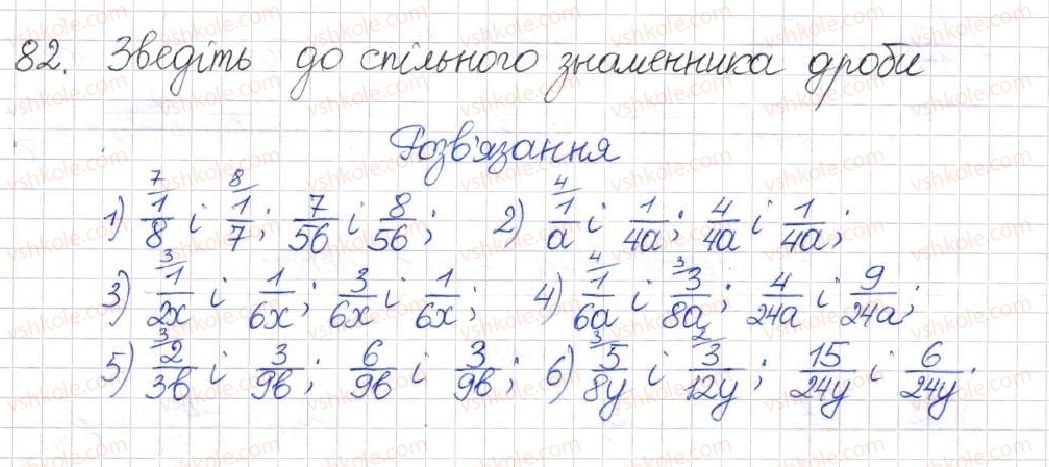 82. Зведіть до спільного знаменника дроби
Розв'язання
1) 7/ 1/8 і 8/ 1/7; 7/56 і 8/56; 2) 4/ 1/a і 1/4a; 4/4a і 1/4a;
3) 3/ 1/2x і 1/6x; 3/6x і 1/6x; 4) 4/ 1/6a і 3/ 3/8a; 4/24a і 9/24a;
5) 3/ 2/3в і 3/9в; 6/9в і 3/9в; 6) 3/ 5/8y і 2/ 3/12y; 15/24y і 6/24y.